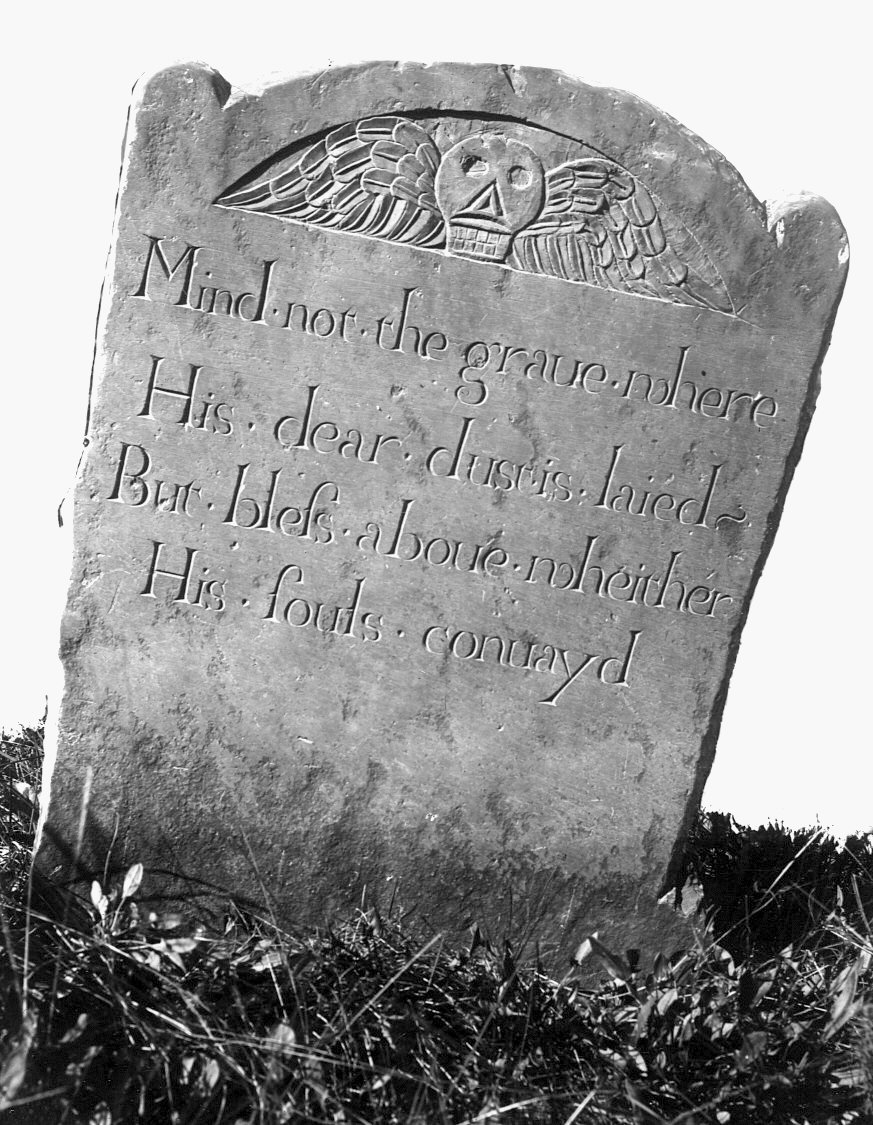 Mind·not·the graue·where
His·dear·dust·is·laied~
But·bleſs·aboue·wheither
His·ſouls·conuayd